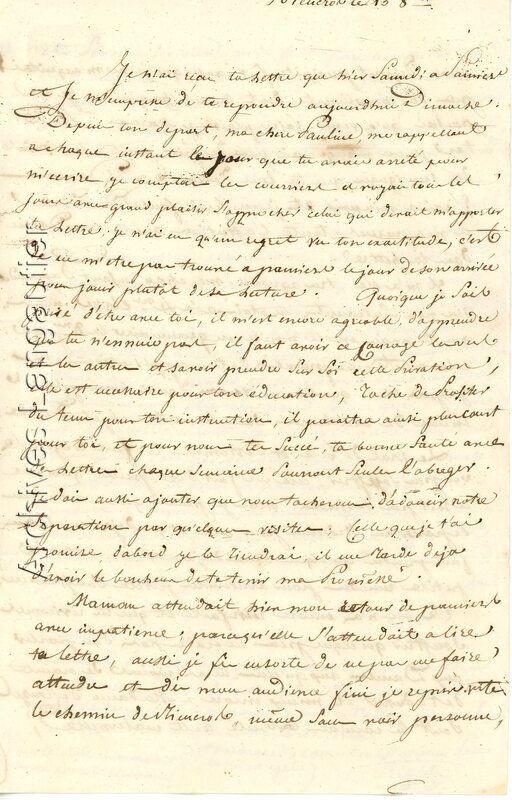 le 18 8
Je n'ai reçu ta lettre que hier Samedi a Pamiers
et Je m'empresse de te repondre aujourdhui Dimanche.
Depuis ton depart, ma chere Pauline, me rappellant
a chaque instant le jour que tu avais arreté pour
m'ecrire je comptai les courriers et voyais tous les
jours avec grand plaisir s'approcher celui qui devait m'apporter
ta lettre. je n'ai eu qu'un regret vu ton exactitude, c'est
de ne m'etre pas trouvé a pamiers le jour de son arrivée
pour jouir plutot de sa lecture. Quoique je Sois
privé d'être avec toi, il m'est encore agreable, d'apprendre
que tu n'ennuie pas, il faut avoir ce Courage les uns
et les autres et savoir prendre Sur Soi cette Privation,
elle est necessaire pour ton éducation, Tache de Profiter
du tems pour ton instruction, il paraitra ainsi plus court
pour toi, et pour nous tes Succès, ta bonne Santé avec
ta Lettre chaque Semaine Pourront Seuls l'abreger.
dois aussi ajouter que nous tacherons d'adoucir notre
Separation par quelques visites; Celle que je t'ai
promise d'abord je la Tiendrai, il me Tarde deja
d'avoir le bonheur de te tenir ma Promesse.
Maman attendait hier mon retour de pamiers
avec impatience, parcequ'elle S'attendait a lire
ta lettre, aussi je fis ensorte de ne pas me faire
attendre et dès mon audience fini je repris vite
le chemin de, même Sans voir personne,
archives Lengautier